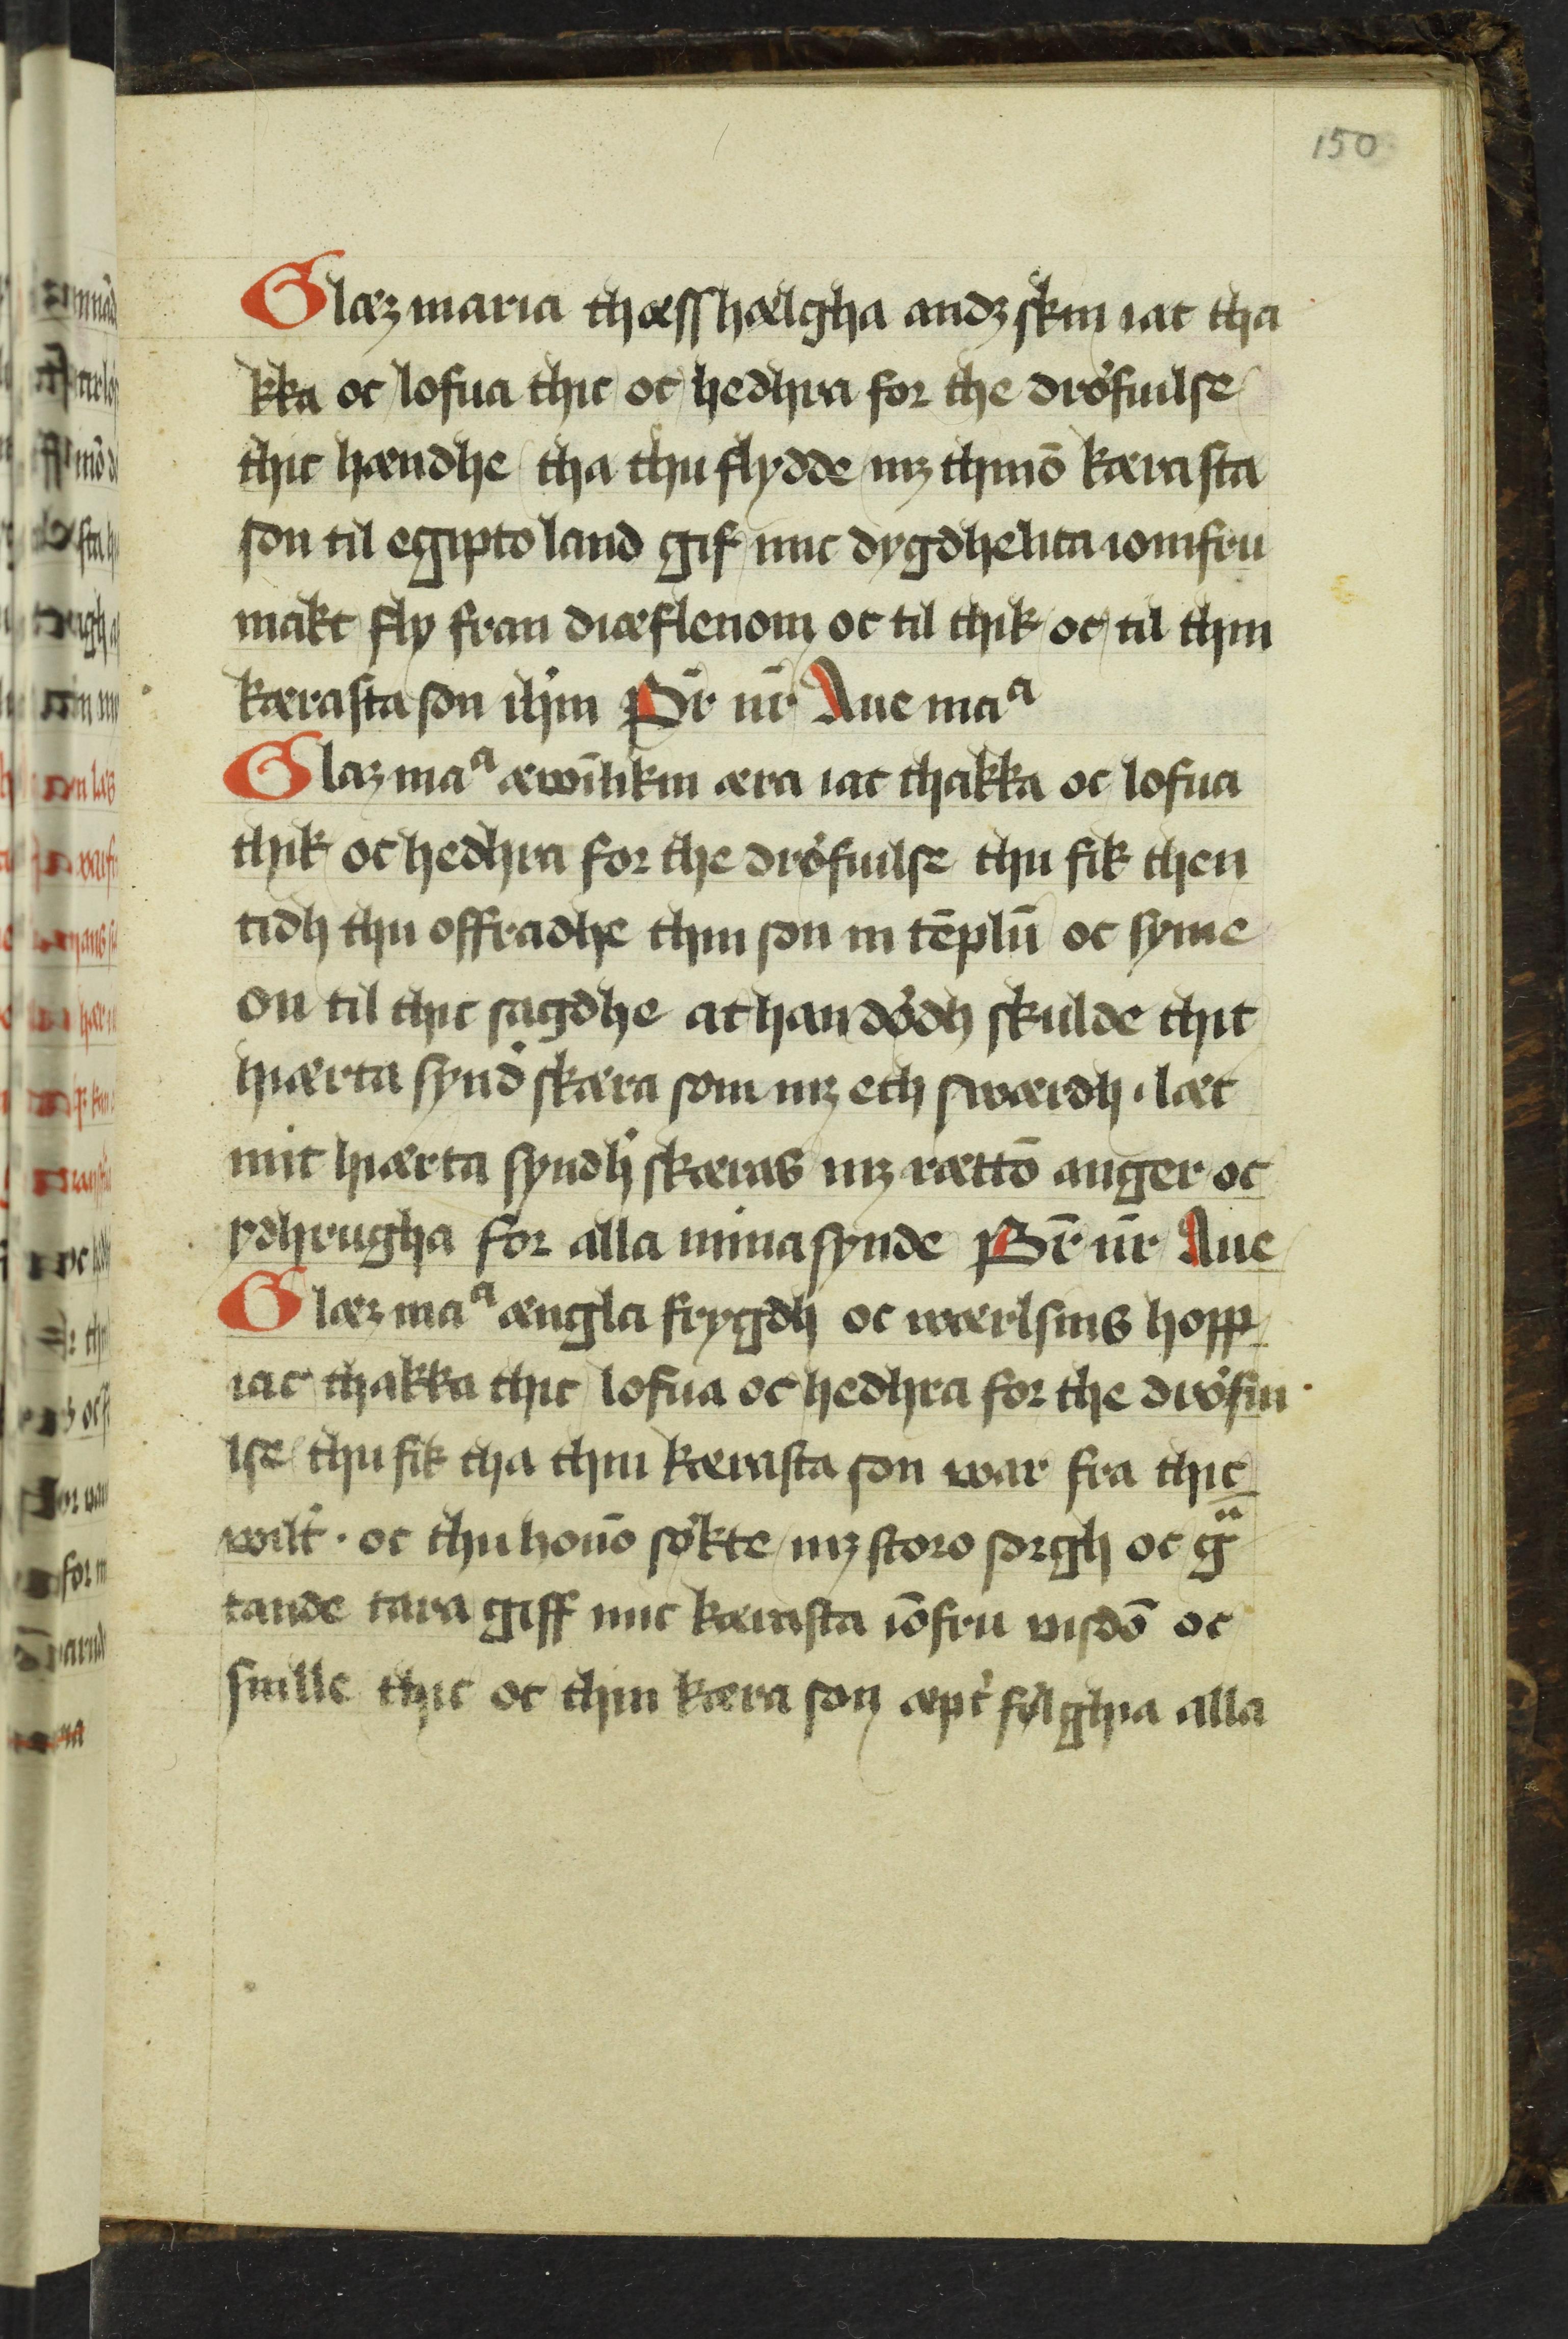 150
Glæz maria thæss hælgha andz skin iac tha
kka oc lofua thic oc hedhra for the dröfuilse
thic hændhe tha thu flydde mz thinō kærasta
son til egipto land gif mic dygdhelica iomfru
makt fly fran diæflenom oc til thik oc til thin
kærasta son ihm Pr̄ nr̄ Aue maᵃ
Glæz maᵃ æwīlikin æra iac thakka oc lofua
thik oc hedhra for the dröfuilse thu fik then
tidh thu offradhe thin son in tēplū oc syme
on til thic sagdhe at han dödh skulde thit
hiærta synd skæra som mz eth swærdh · læt
mit hiærta syndh skæras mz rættō anger oc
ydhrugha for alla mina synde Pr̄ nr̄ Aue
Glæz maᵃ ængla frygdh oc wærlsins hopp
iac thakka thic lofua oc hedhra for the dröfui
lse thu fik tha thin kærasta son war fra thic
wilt · oc thu honō sökte mz storo sorgh oc gᵃ
tande tara giff mic kærasta iōfru visdō oc
snille thic oc thin kæra son æpt fylghia alla